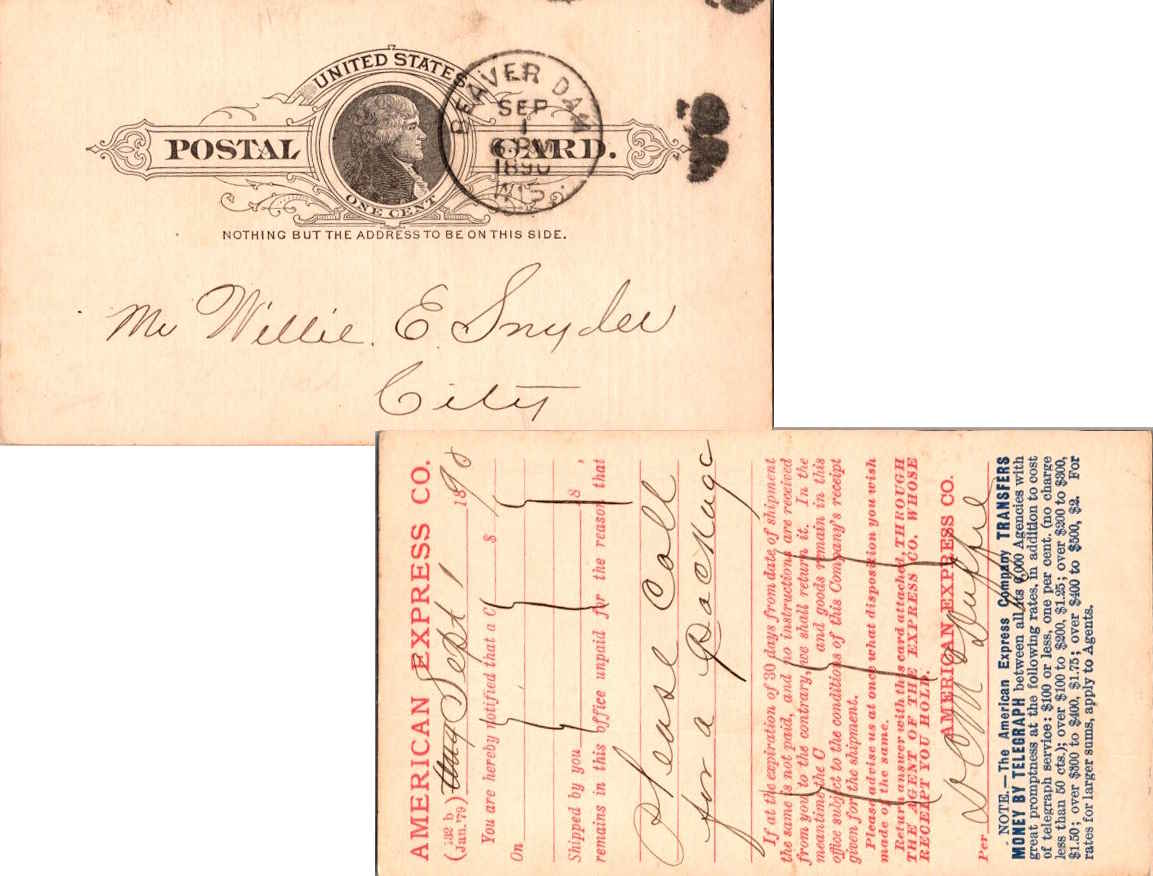 UNITED STATES
POSTAL CARD.
ONE CENT
BEAVER DAM
SEP
1
6 PM
1890
WIS.
NOTHING BUT THE ADDRESS TO BE ON THIS SIDE.
Mr Willie. E. Snyder
City
AMERICAN EXPRESS CO.
(332 b
Jan. '79) Sept 1 1890
You are hereby notified that a C $
On 18 ,
Shipped by you
remains in this office unpaid for the reason that
Please Call
for a Package
If at the expiration of 30 days from date of shipment
the same is not paid, and no instructions are received
from you to the contrary, we shall return it. In the
meantime the C and goods remain in this
office subject to the conditions of this Company's receipt
given for the shipment.
Please advise us at once what disposition you wish
made of the same.
Return answer with this card attached, THROUGH
THE AGENT OF THE EXPRESS CO. WHOSE
RECEIPT YOU HOLD.
AMERICAN EXPRESS CO.
Per
NOTE.—The American Express Company TRANSFERS
MONEY BY TELEGRAPH between all its 6,000 Agencies with
great promptness at the following rates, in addition to cost
of telegraph service: $100 or less, one per cent. (no charge
less than 50 cts.); over $100 to $200, $1.25; over $200 to $300,
$1.50; over $300 to $400, $1.75; over $400 to $500, $2. For
rates for larger sums, apply to Agents.